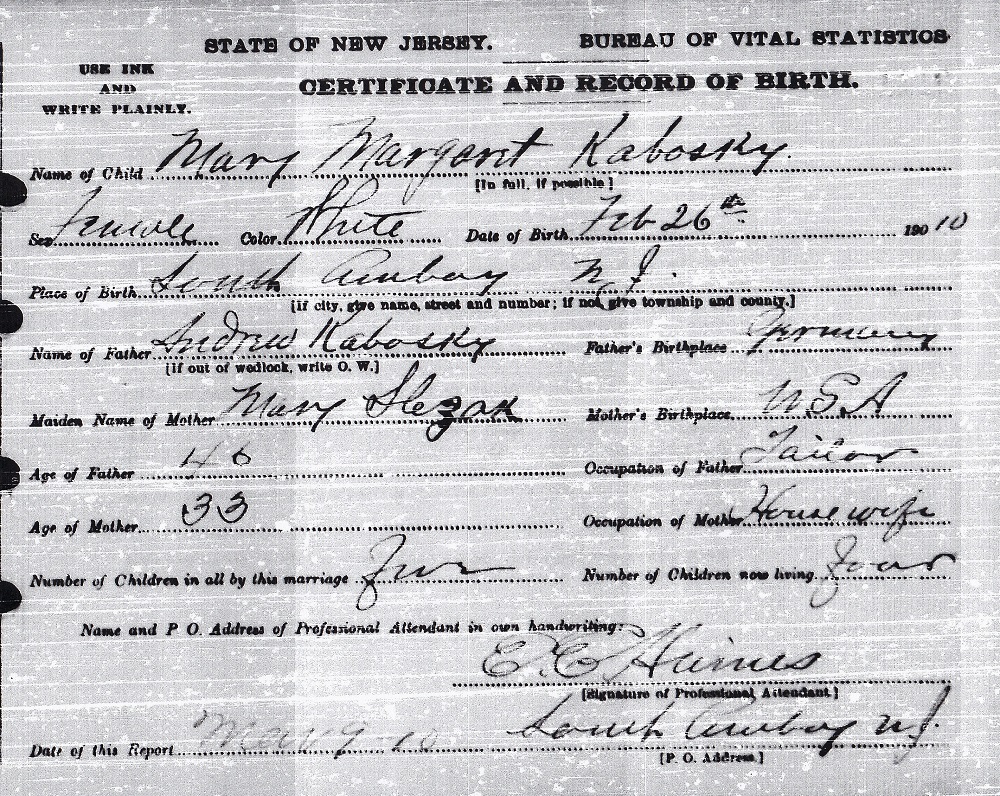 STATE OF NEW JERSEY. BUREAU OF VITAL STATISTICS
USE INK
AND
WRITE PLAINLY.
CERTIFICATE AND RECORD OF BIRTH.
Name of Child Mary Margaret Kabosky.
[In full, if possible]
Sex Female Color White Date of Birth Feb 26th 190 10
Place of Birth South Amboy N.J.
[If city, give name, street and number; if not, give township and county.]
Name of Father Andrew Kabosky Father's Birthplace Germany
[If out of wedlock, write O. W.]
Maiden Name of Mother Mary Slezak Mother's Birthplace USA
Age of Father 46 Occupation of Father Tailor
Age of Mother 33 Occupation of Mother Housewife
Number of Children in all by this marriage Number of Children now living Four
Name and P O. Address of Professional Attendant in own handwriting:
E.C. Haines
[Signature of Professional Attendant]
Date of this Report Mar 9 - 10 South Amboy N.J.
[P. O. Address.]